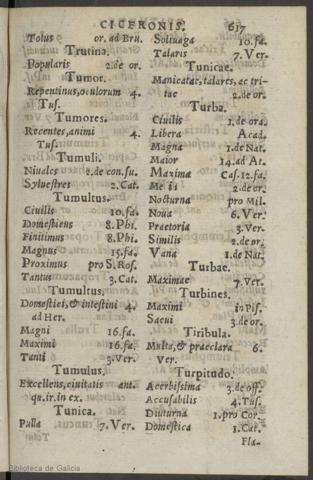 CICERONIS. 617
Totus or. ad Bru.
Trutina.
Popularis 2. de or.
Tumor.
Repentinus, oculorum 4.
Tus.
Tumores.
Recentes, animi 4.
Tus.
Tumuli.
Niuales 2. de con. su.
Syluestres 2. Cat.
Tumultus.
Ciuilis 10. fa.
Domesticus 8. Phi.
Finitimus 8. Phi.
Magnus 15. fa.
Proximus pro S. Ros.
Tantus 3. Cat.
Tumultus,
Domestici, & intestini 4.
ad Her.
Magni 16. fa.
Maximi 16. fa.
Tanti 3. Ver.
Tumulus,
Excellens, ciuitatis ant.
qu. ir. in ex.
Tunica.
Pulla 7. Ver.
Soliuaga 10. fa.
Talaris 7. Ver.
Tunicae.
Manicatae, talares, ac tri-
tae 2. de or.
Turba.
Ciuilis 1. de ora.
Libera Acad.
Magna 1. de Nat.
Maior 14. ad At.
Maxima Caf. 12. fa.
2. de or.
Nocturna pro Mil.
Noua 6. Ver.
Praetoria 3. Ver.
Similis 2. de or.
Vana 1. de Nat.
Turbae.
Maximae 7. Ver.
Turbines.
Maximi in Pis.
Saeui 3. de or.
Tiribula.
Multa, & praeclara 6.
Ver.
Turpitudo.
Acerbissima 3. de off.
Accusabilis 4. Tus.
Diuturna 1. pro Cor.
Domestica 1. Cat.
Fla-
Biblioteca de Galicia